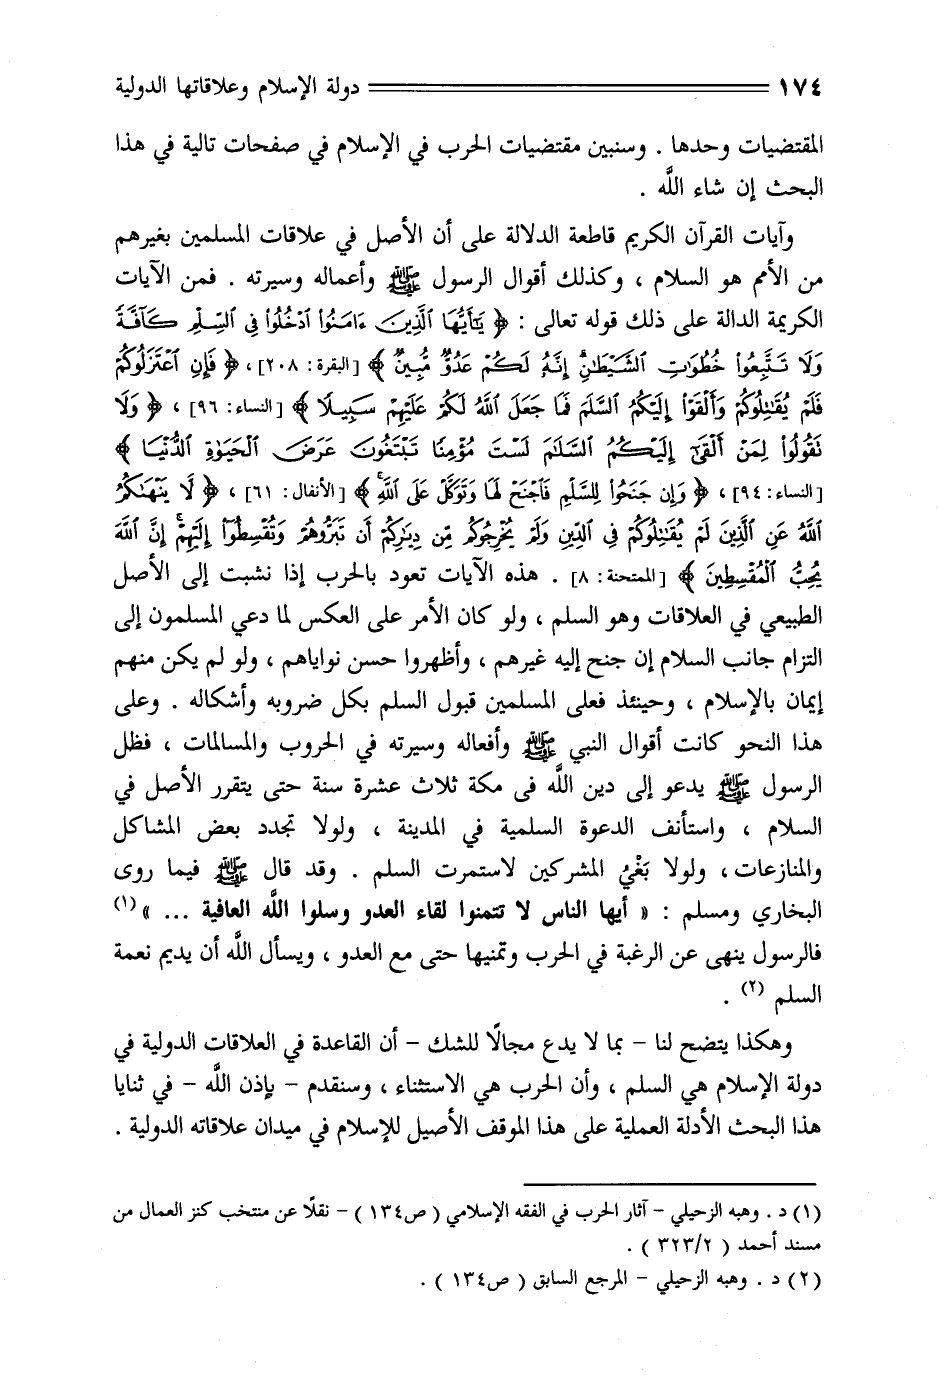 ١٧٤ دولة الإسلام وعلاقاتها الدولية
المقتضيات وحدها . وسنبين مقتضيات الحرب في الإسلام في صفحات تالية في هذا
البحث إن شاء اللَّه .
وآيات القرآن الكريم قاطعة الدلالة على أن الأصل في علاقات المسلمين بغيرهم
من الأمم هو السلام ، وكذلك أقوال الرسول ﷺ وأعماله وسيرته . فمن الآيات
الكريمة الدالة على ذلك قوله تعالى : ﴿ يَٰٓأَيُّهَا ٱلَّذِينَ ءَامَنُوا۟ ٱدْخُلُوا۟ فِى ٱلسِّلْمِ كَآفَّةً
وَلَا تَتَّبِعُوا۟ خُطُوَٰتِ ٱلشَّيْطَٰنِ ۚ إِنَّهُۥ لَكُمْ عَدُوٌّ مُّبِينٌ ﴾ [البقرة: ٢٠٨] ، ﴿ فَإِنِ ٱعْتَزَلُوكُمْ
فَلَمْ يُقَٰتِلُوكُمْ وَأَلْقَوْا۟ إِلَيْكُمُ ٱلسَّلَمَ فَمَا جَعَلَ ٱللَّهُ لَكُمْ عَلَيْهِمْ سَبِيلًا ﴾ [النساء: ٩٦] ، ﴿ وَلَا
تَقُولُوا۟ لِمَنْ أَلْقَىٰٓ إِلَيْكُمُ ٱلسَّلَٰمَ لَسْتَ مُؤْمِنًا تَبْتَغُونَ عَرَضَ ٱلْحَيَوٰةِ ٱلدُّنْيَا ﴾
[النساء: ٩٤] ، ﴿ وَإِن جَنَحُوا۟ لِلسَّلْمِ فَٱجْنَحْ لَهَا وَتَوَكَّلْ عَلَى ٱللَّهِ ۚ ﴾ [الأنفال: ٦١] ، ﴿ لَّا يَنْهَىٰكُمُ
ٱللَّهُ عَنِ ٱلَّذِينَ لَمْ يُقَٰتِلُوكُمْ فِى ٱلدِّينِ وَلَمْ يُخْرِجُوكُم مِّن دِيَٰرِكُمْ أَن تَبَرُّوهُمْ وَتُقْسِطُوٓا۟ إِلَيْهِمْ ۚ إِنَّ ٱللَّهَ
يُحِبُّ ٱلْمُقْسِطِينَ ﴾ [الممتحنة: ٨] . هذه الآيات تعود بالحرب إذا نشبت إلى الأصل
الطبيعي في العلاقات وهو السلم ، ولو كان الأمر على العكس لما دعي المسلمون إلى
التزام جانب السلام إن جنح إليه غيرهم ، وأظهروا حسن نواياهم ، ولو لم يكن منهم
إيمان بالإسلام ، وحينئذ فعلى المسلمين قبول السلم بكل ضروبه وأشكاله . وعلى
هذا النحو كانت أقوال النبي ﷺ وأفعاله وسيرته في الحروب والمسالمات ، فظل
الرسول ﷺ يدعو إلى دين اللَّه فى مكة ثلاث عشرة سنة حتى يتقرر الأصل في
السلام ، واستأنف الدعوة السلمية في المدينة ، ولولا تجدد بعض المشاكل
والمنازعات ، ولولا بَغْيُ المشركين لاستمرت السلم . وقد قال ﷺ فيما روى
البخاري ومسلم : « أيها الناس لا تتمنوا لقاء العدو وسلوا اللَّه العافية ... » (١)
فالرسول ينهى عن الرغبة في الحرب وتمنيها حتى مع العدو ، ويسأل اللَّه أن يديم نعمة
السلم (٢) .
وهكذا يتضح لنا - بما لا يدع مجالًا للشك - أن القاعدة في العلاقات الدولية في
دولة الإسلام هي السلم ، وأن الحرب هي الاستثناء ، وسنقدم - بإذن اللَّه - في ثنايا
هذا البحث الأدلة العملية على هذا الموقف الأصيل للإسلام في ميدان علاقاته الدولية .
(١) د . وهبه الزحيلي - آثار الحرب في الفقه الإسلامي ( ص١٣٤ ) - نقلًا عن منتخب كنز العمال من
مسند أحمد ( ٣٢٣/٢ ) .
(٢) د . وهبه الزحيلي - المرجع السابق ( ص١٣٤ ) .